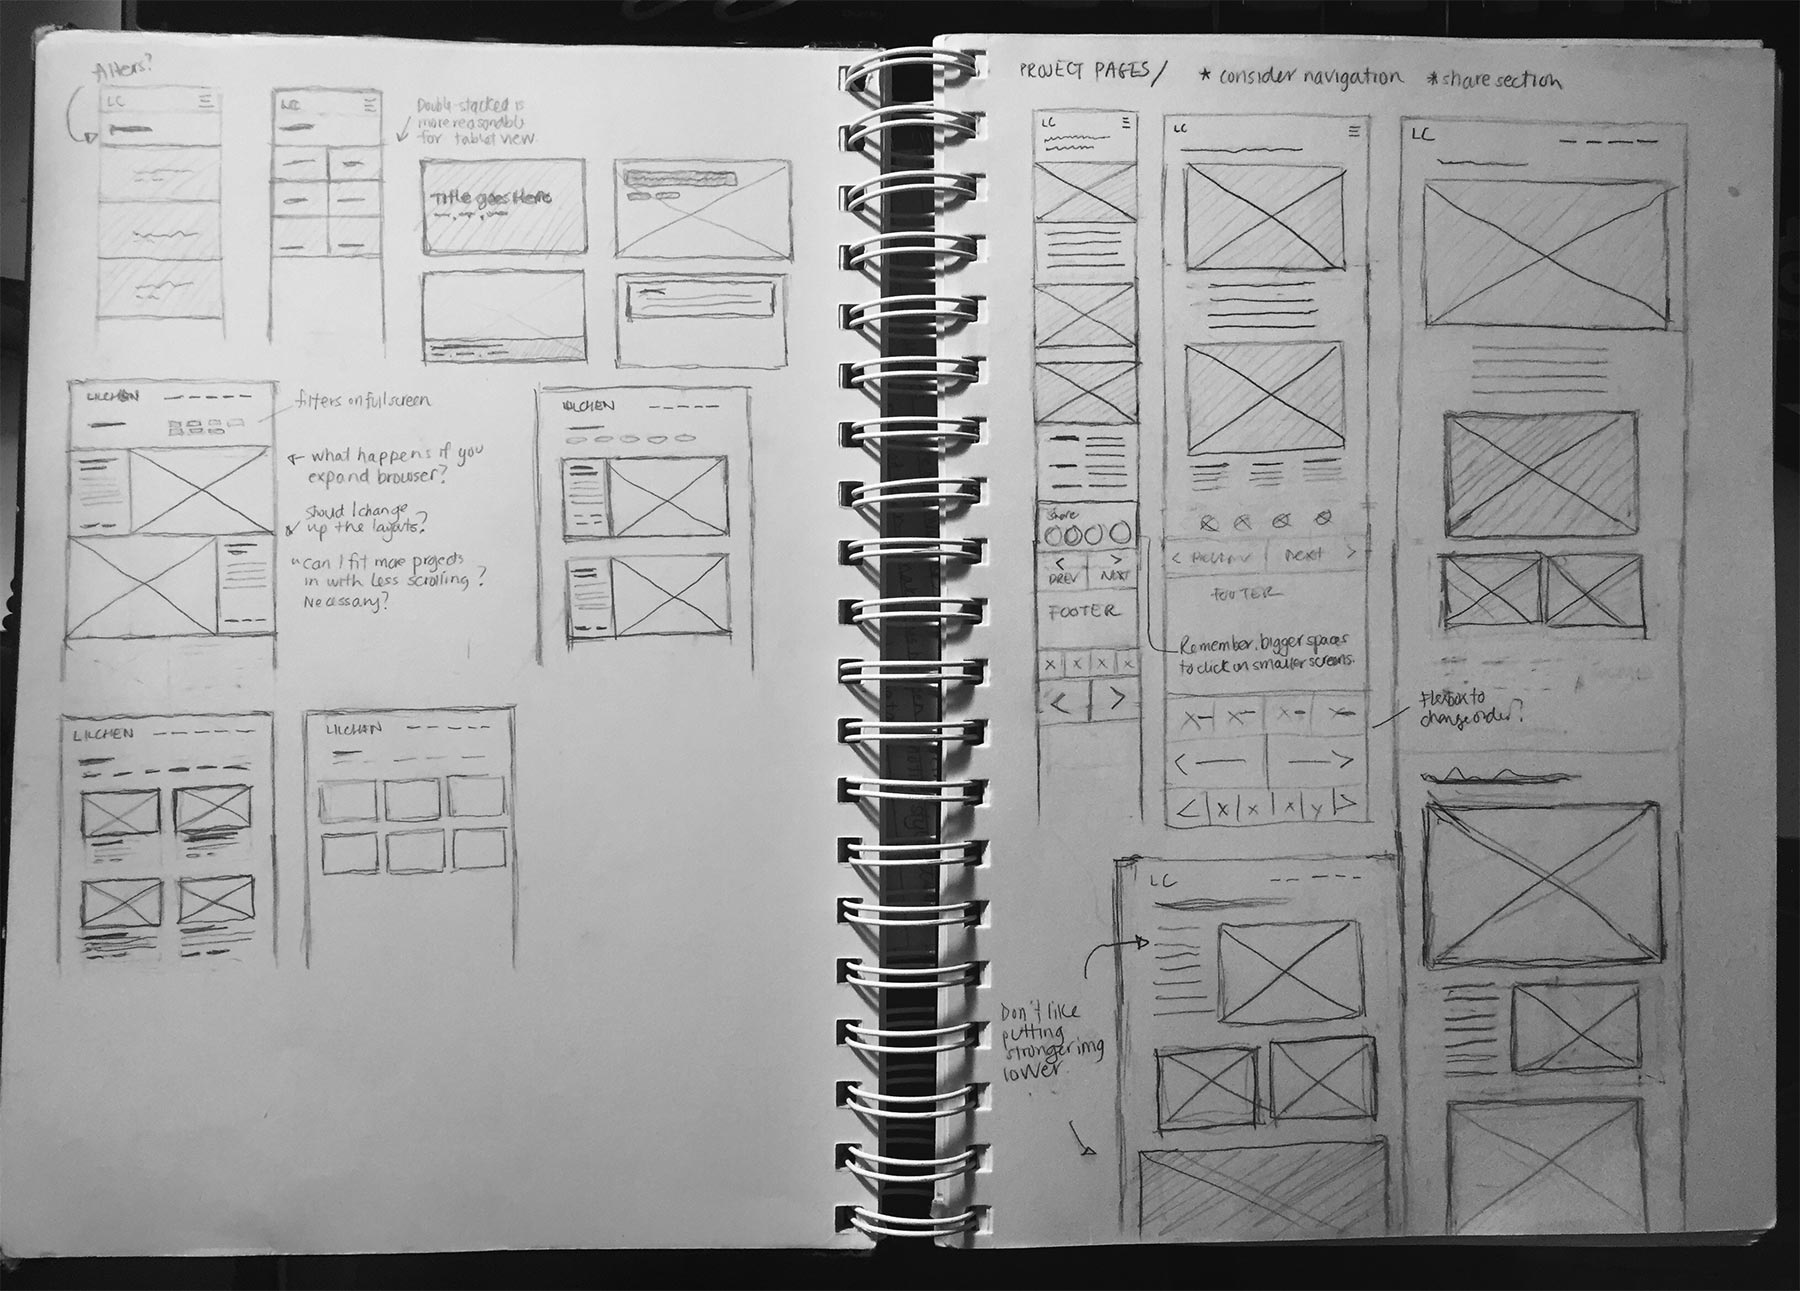 filters?
LC
LC
Double-stacked is
more reasonable
for tablet view.
Title goes Here
LILCHEN
filters on full screen
what happens if you
expand browser?
should I change
up the layouts?
Can I fit more projects
in with less scrolling?
Necessary?
LILCHEN
LILCHEN
LILCHEN
PROJECT PAGES/ * consider navigation * share section
LC
Share
< >
PREV NEXT
FOOTER
X X X X
< >
LC
< PREV NEXT >
FOOTER
Remember, bigger spaces
to click on smaller screens.
X X X X
< >
< X X X X >
Flexbox to
change order?
LC
LC
Don't like
putting
stronger img
lower.